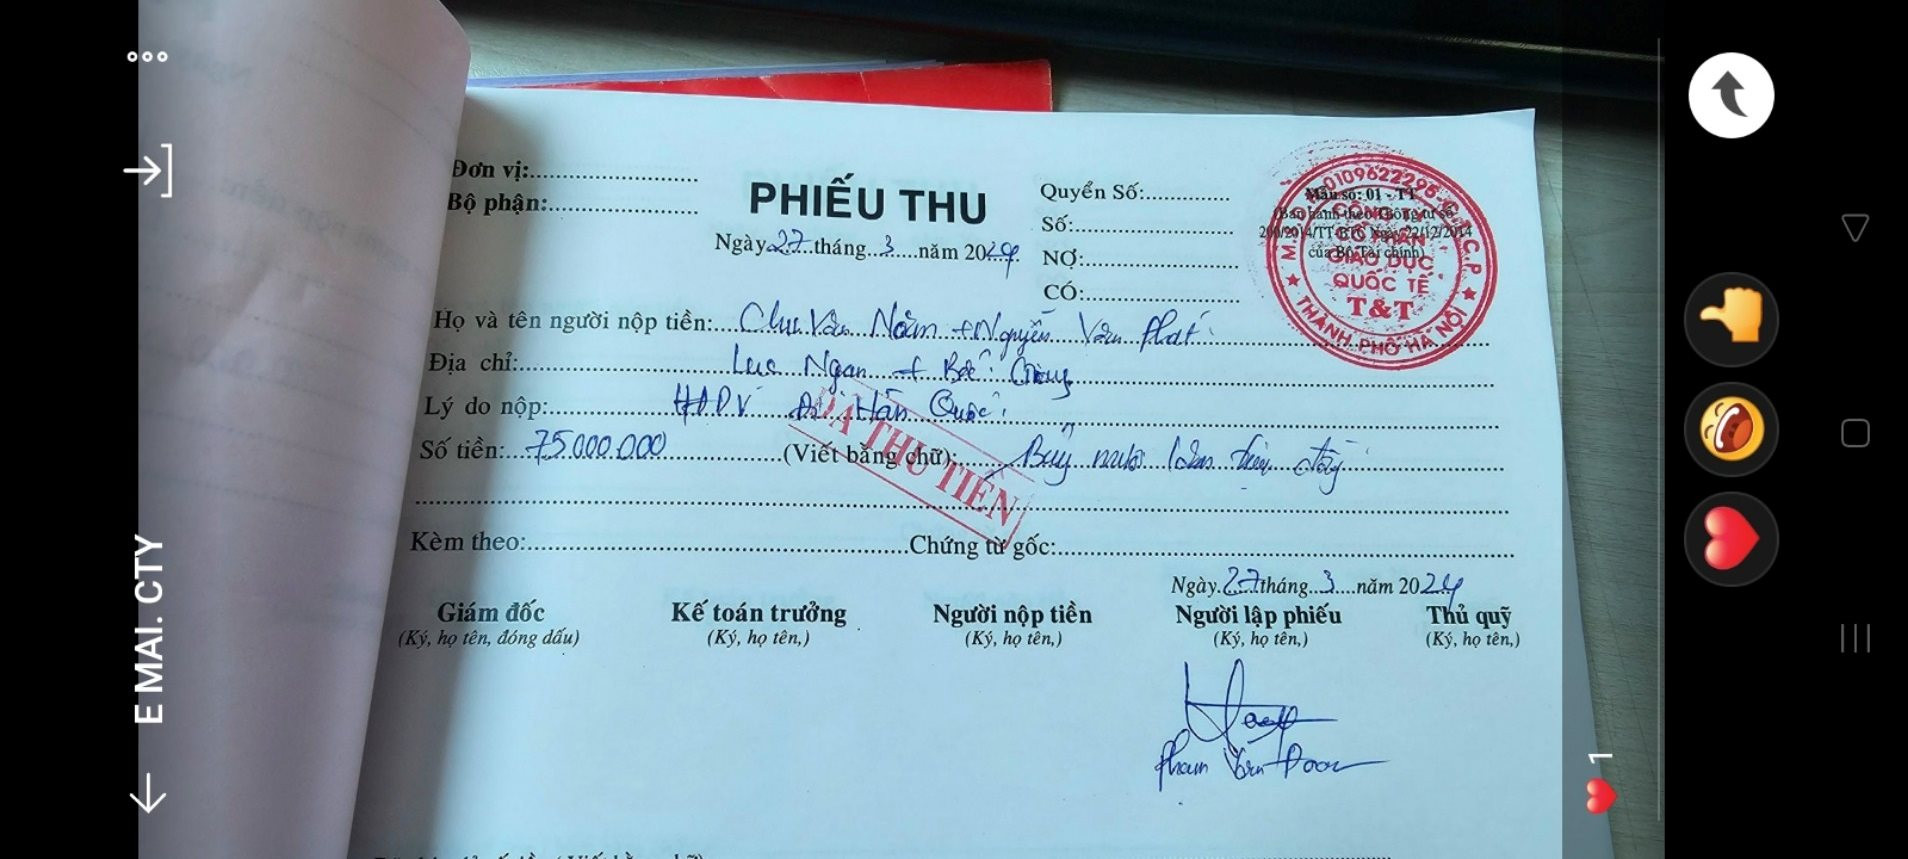 Đơn vị:
Bộ phận:
PHIẾU THU
Ngày 27 tháng 3 năm 2024
Quyển Số:
Số:
NỢ:
CÓ:
Mẫu số: 01 - TT
(Ban hành theo Thông tư số
200/2014/TT-BTC Ngày 22/12/2014
của Bộ Tài chính)
M.S.D.N: 0109622295-C.T.C.P
CÔNG TY
CỔ PHẦN
GIÁO DỤC
QUỐC TẾ
T&T
THÀNH PHỐ HÀ NỘI
Họ và tên người nộp tiền: Chu Văn Năm + Nguyễn Văn Phát
Địa chỉ: Lục Ngạn + Bắc Giang
Lý do nộp: HĐDV Đi Hàn Quốc
Số tiền: 75.000.000 (Viết bằng chữ): Bảy mươi lăm triệu đồng
ĐÃ THU TIỀN
Kèm theo: Chứng từ gốc:
Ngày 27 tháng 3 năm 2024
Giám đốc Kế toán trưởng Người nộp tiền Người lập phiếu Thủ quỹ
(Ký, họ tên, đóng dấu) (Ký, họ tên,) (Ký, họ tên,) (Ký, họ tên,) (Ký, họ tên,)
Phạm Văn
E MAI. CTY
1